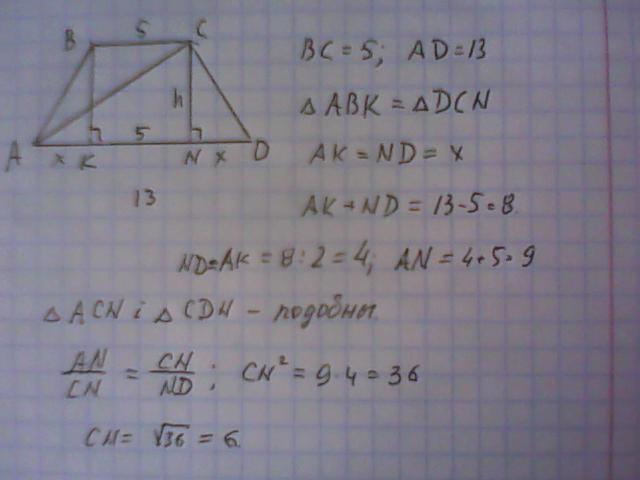 B 5 C
h
A x K 5 N x D
13
BC = 5; AD = 13
△ABK = △DCN
AK = ND = x
AK + ND = 13 - 5 = 8
ND = AK = 8 : 2 = 4; AN = 4 + 5 = 9
△ACN i △CDN - подобны
AN/CN = CN/ND; CN² = 9 · 4 = 36
CN = √36 = 6